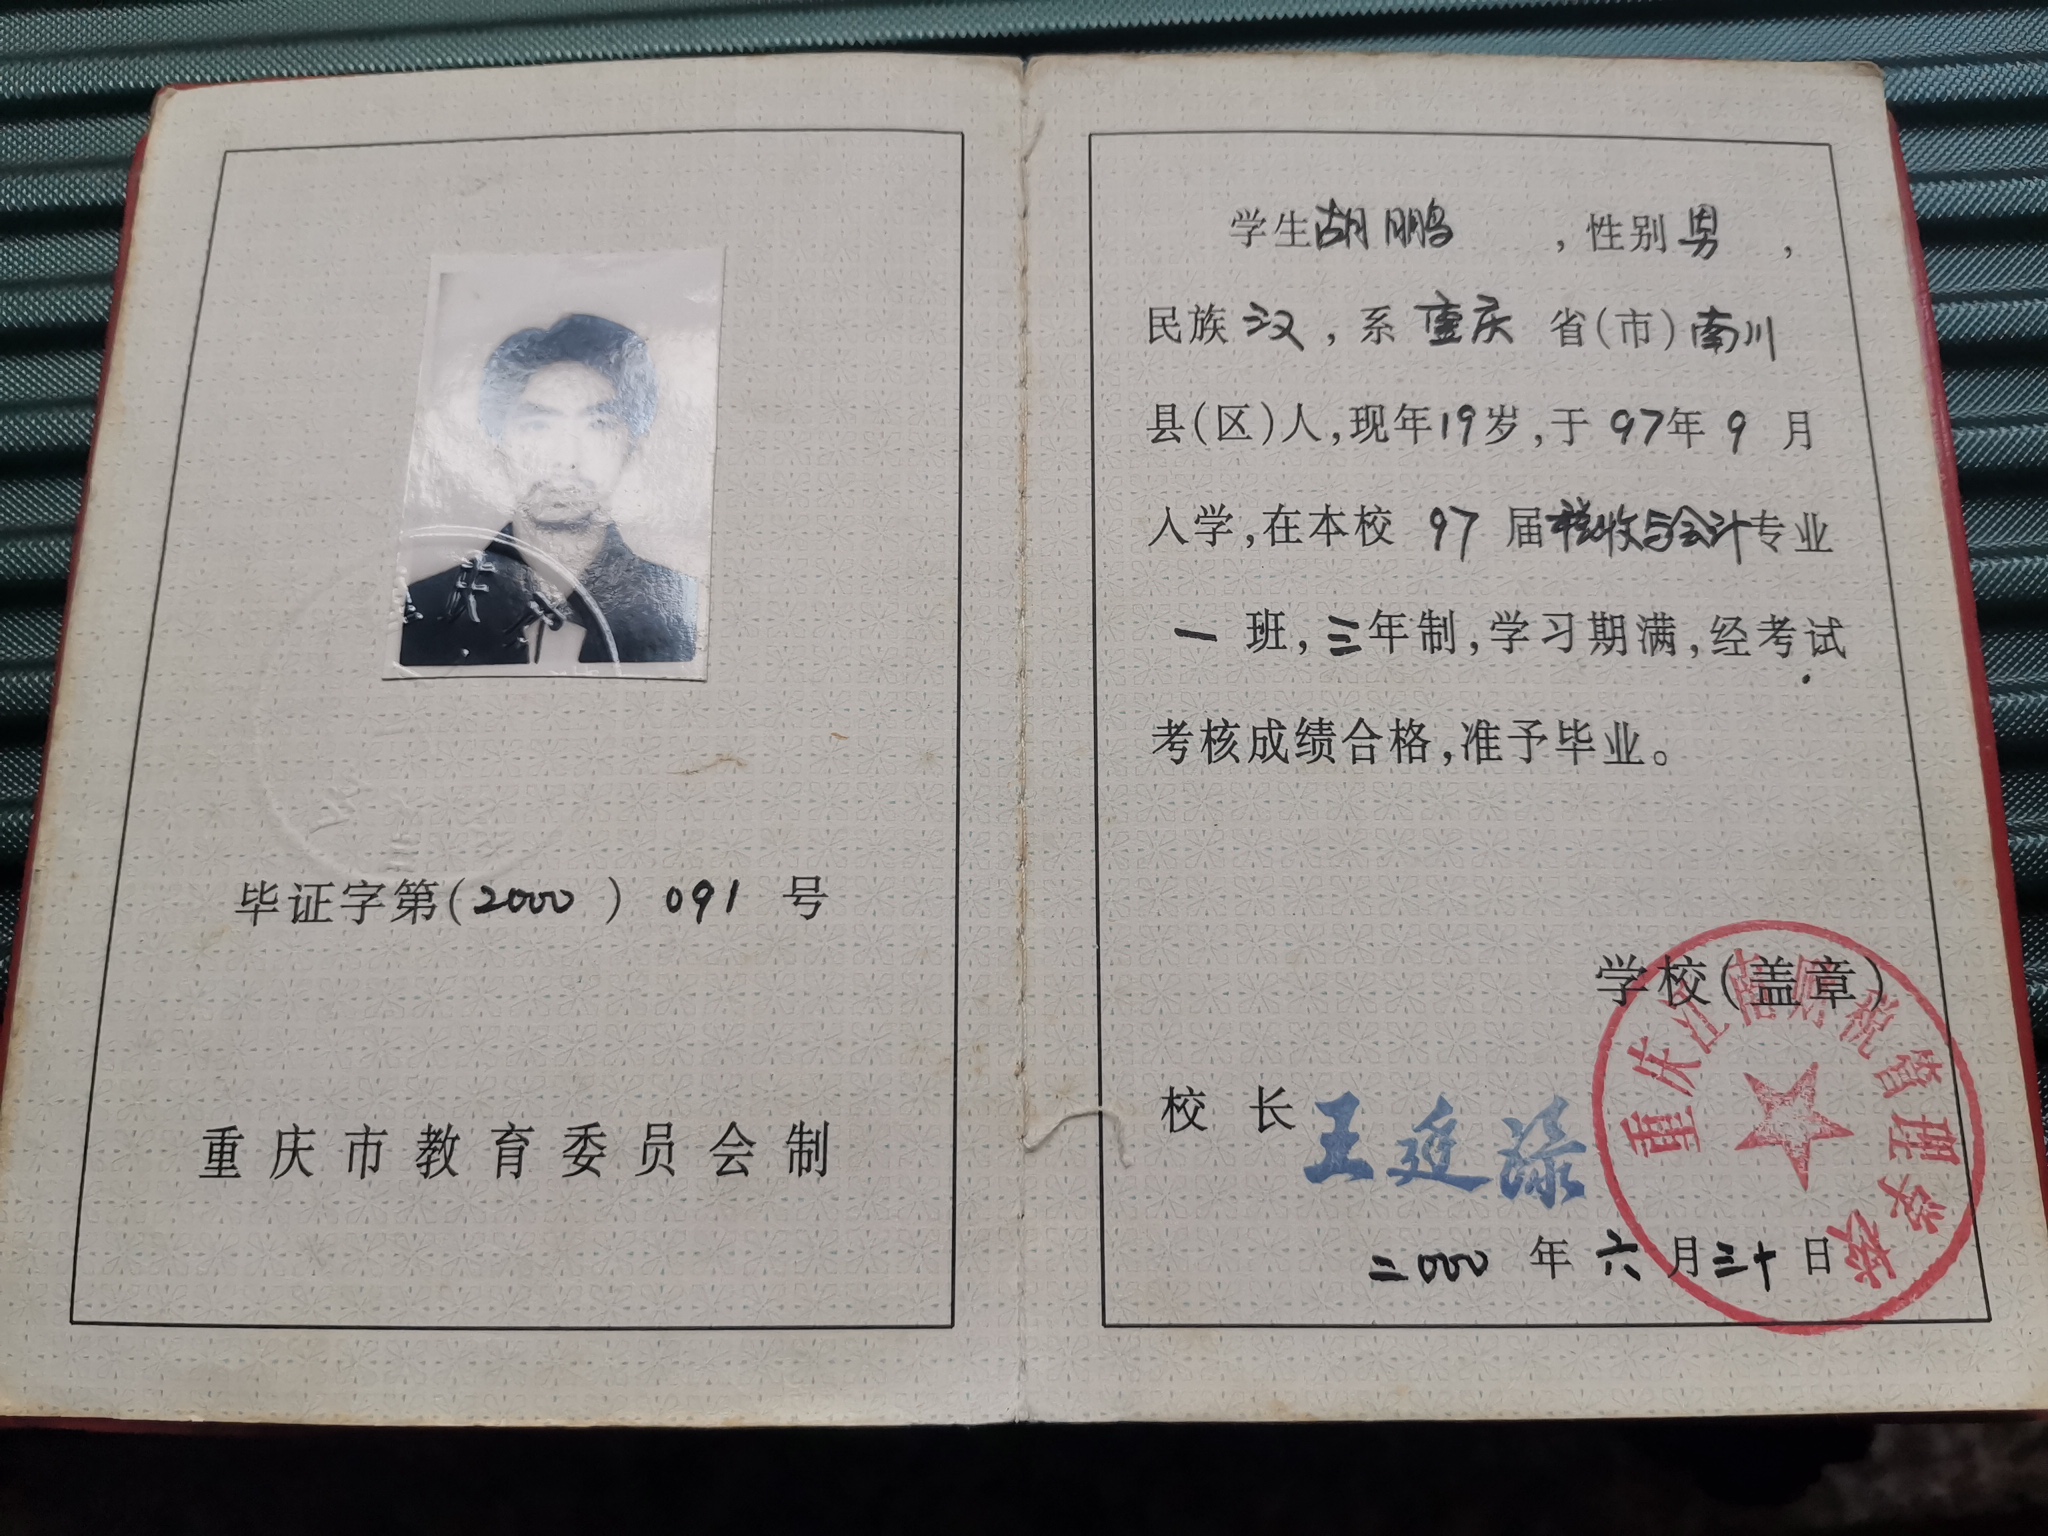 毕证字第(2000)091号
重庆市教育委员会制
学生胡鹏,性别男,
民族汉,系重庆省(市)南川
县(区)人,现年19岁,于97年9月
入学,在本校97届税收与会计专业
一班,三年制,学习期满,经考试
考核成绩合格,准予毕业。
学校(盖章)
重庆江南财税管理学校
校长王廷禄
二000年六月三十日